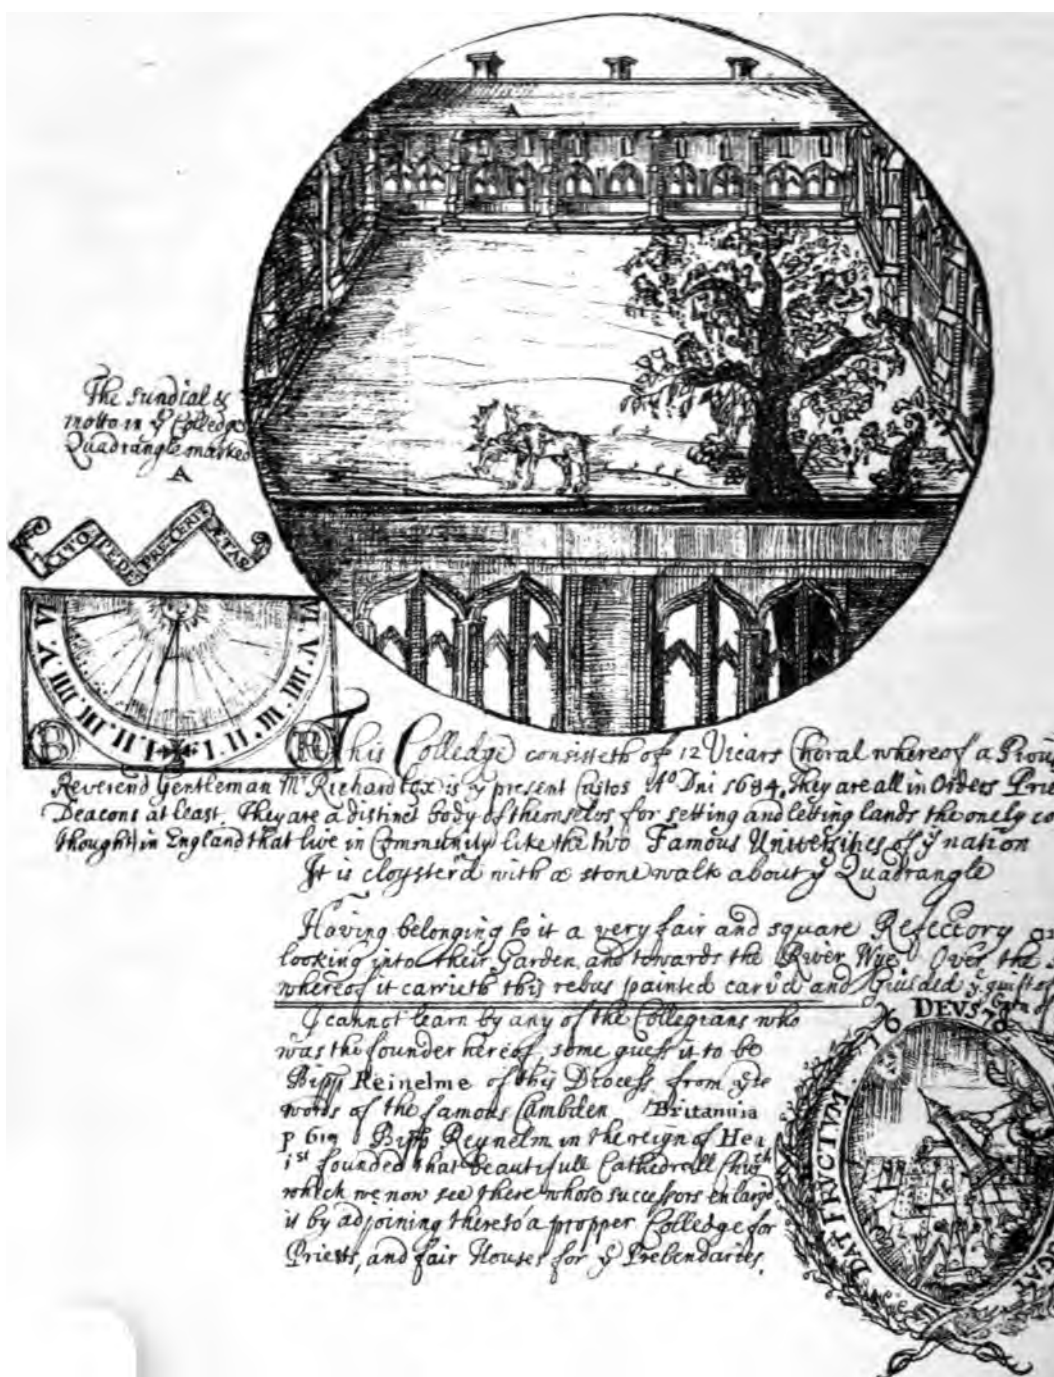 The Sundial &
motto in yͤ Colledge
Quadrangle marked
A
A
CITO PEDE PRETERIT ÆTAS
VI. V. IIII. III. II. I
I. II. III. IIII. V. VI
B R
This Colledge consisteth of 12 Vicars Choral whereof a
Reverend Gentleman Mͬ Richard Cox is yͤ present Custos Aͦ Dni 1684, They are all in Orders
Deacons at least, They are a distinct body of themselvs for setting and letting lands the onely
thought in England that live in Community like the two Famous Universities of yͤ nation
It is cloyster'd with a stone walk about yͤ Quadrangle
Having belonging to it a very fair and square Refectory
looking into their Garden, and towards the River Wye. Over the
whereof it carrieth this rebus painted carv'd and Guilded yͤ guift of
I cannot learn by any of the Collegians who
was the founder hereof, some guess it to be
Bipp Reinelme of this Diocess from
words of the famous Cambden Britannia
p 619 Bipp Reynelm in the reign of Hen
1ˢᵗ founded that beautifull Cathedrall Church
which we now see there whose successors enlarg'd
it by adjoining thereto a propper Colledge for
Priests, and fair Houses for yͤ Prebendaries.
16 DEVS 70
DAT FRVCTVM.